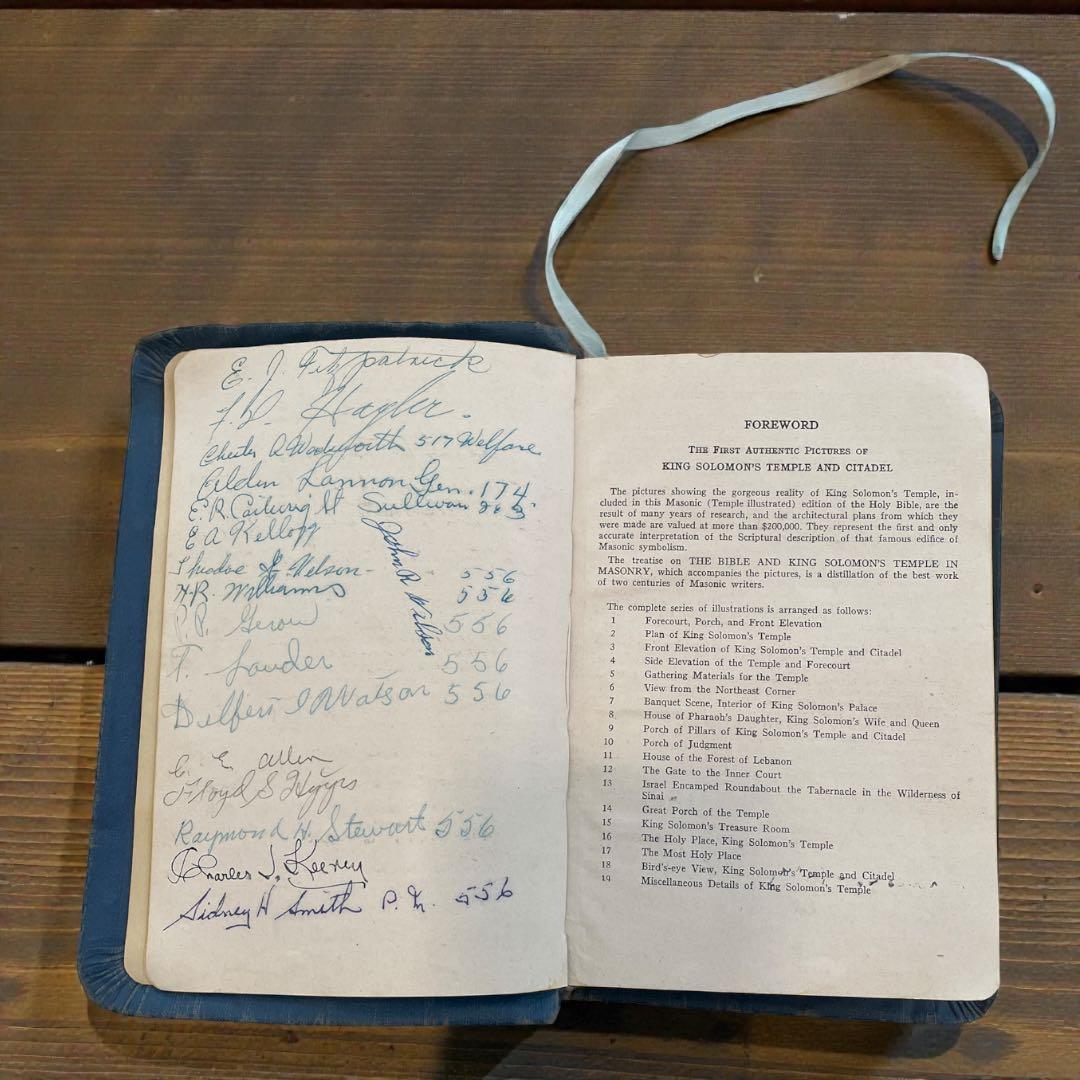 E. J. Fitzpatrick
Hagler.
Chester A Wadsworth 517 Welfare
Alden Lannon Gen. 174
E.R. Cartwright Sullivan
E A Kellogg
John R. Wilson
Theodore Nelson - 556
H.R. Williams 556
P.P. Gerow 556
F. Lauder 556
Delfert Watson 556
C. E. Allen
Floyd S
Raymond H. Stewart 556
Charles J. Keeney
Sidney H Smith P.M. 556
FOREWORD
The First Authentic Pictures of
KING SOLOMON'S TEMPLE AND CITADEL
The pictures showing the gorgeous reality of King Solomon's Temple, in-
cluded in this Masonic (Temple illustrated) edition of the Holy Bible, are the
result of many years of research, and the architectural plans from which they
were made are valued at more than $200,000. They represent the first and only
accurate interpretation of the Scriptural description of that famous edifice of
Masonic symbolism.
The treatise on THE BIBLE AND KING SOLOMON'S TEMPLE IN
MASONRY, which accompanies the pictures, is a distillation of the best work
of two centuries of Masonic writers.
The complete series of illustrations is arranged as follows:
1 Forecourt, Porch, and Front Elevation
2 Plan of King Solomon's Temple
3 Front Elevation of King Solomon's Temple and Citadel
4 Side Elevation of the Temple and Forecourt
5 Gathering Materials for the Temple
6 View from the Northeast Corner
7 Banquet Scene, Interior of King Solomon's Palace
8 House of Pharaoh's Daughter, King Solomon's Wife and Queen
9 Porch of Pillars of King Solomon's Temple and Citadel
10 Porch of Judgment
11 House of the Forest of Lebanon
12 The Gate to the Inner Court
13 Israel Encamped Roundabout the Tabernacle in the Wilderness of
Sinai
14 Great Porch of the Temple
15 King Solomon's Treasure Room
16 The Holy Place, King Solomon's Temple
17 The Most Holy Place
18 Bird's-eye View, King Solomon's Temple and Citadel
19 Miscellaneous Details of King Solomon's Temple